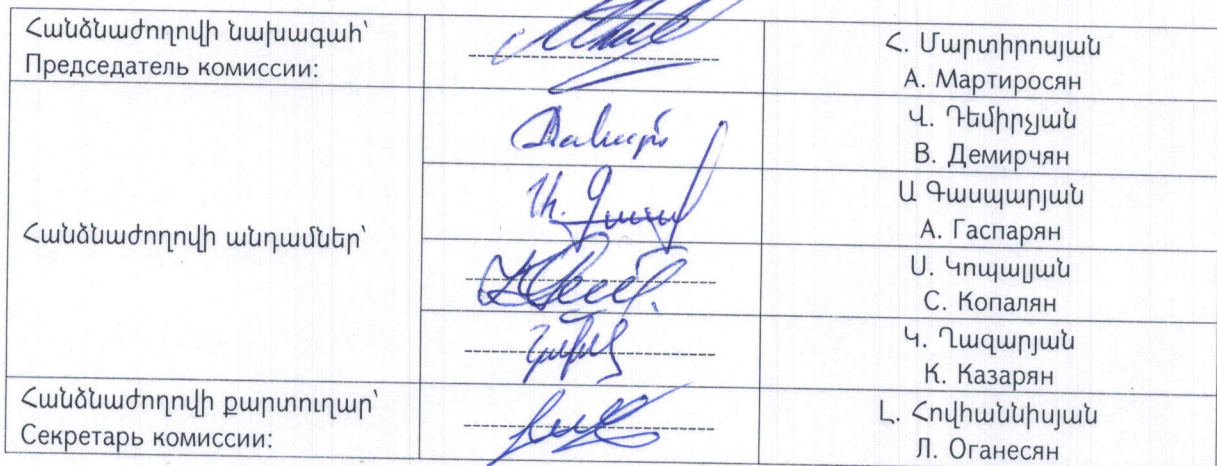 Հանձնաժողովի նախագահ՝
Председатель комиссии:
Հ. Մարտիրոսյան
А. Мартиросян
Հանձնաժողովի անդամներ՝
Վ. Դեմիրչյան
В. Демирчян
Ա Գասպարյան
А. Гаспарян
Ս. Կոպալյան
С. Копалян
Կ. Ղազարյան
К. Казарян
Հանձնաժողովի քարտուղար՝
Секретарь комиссии:
Լ. Հովհաննիսյան
Л. Оганесян